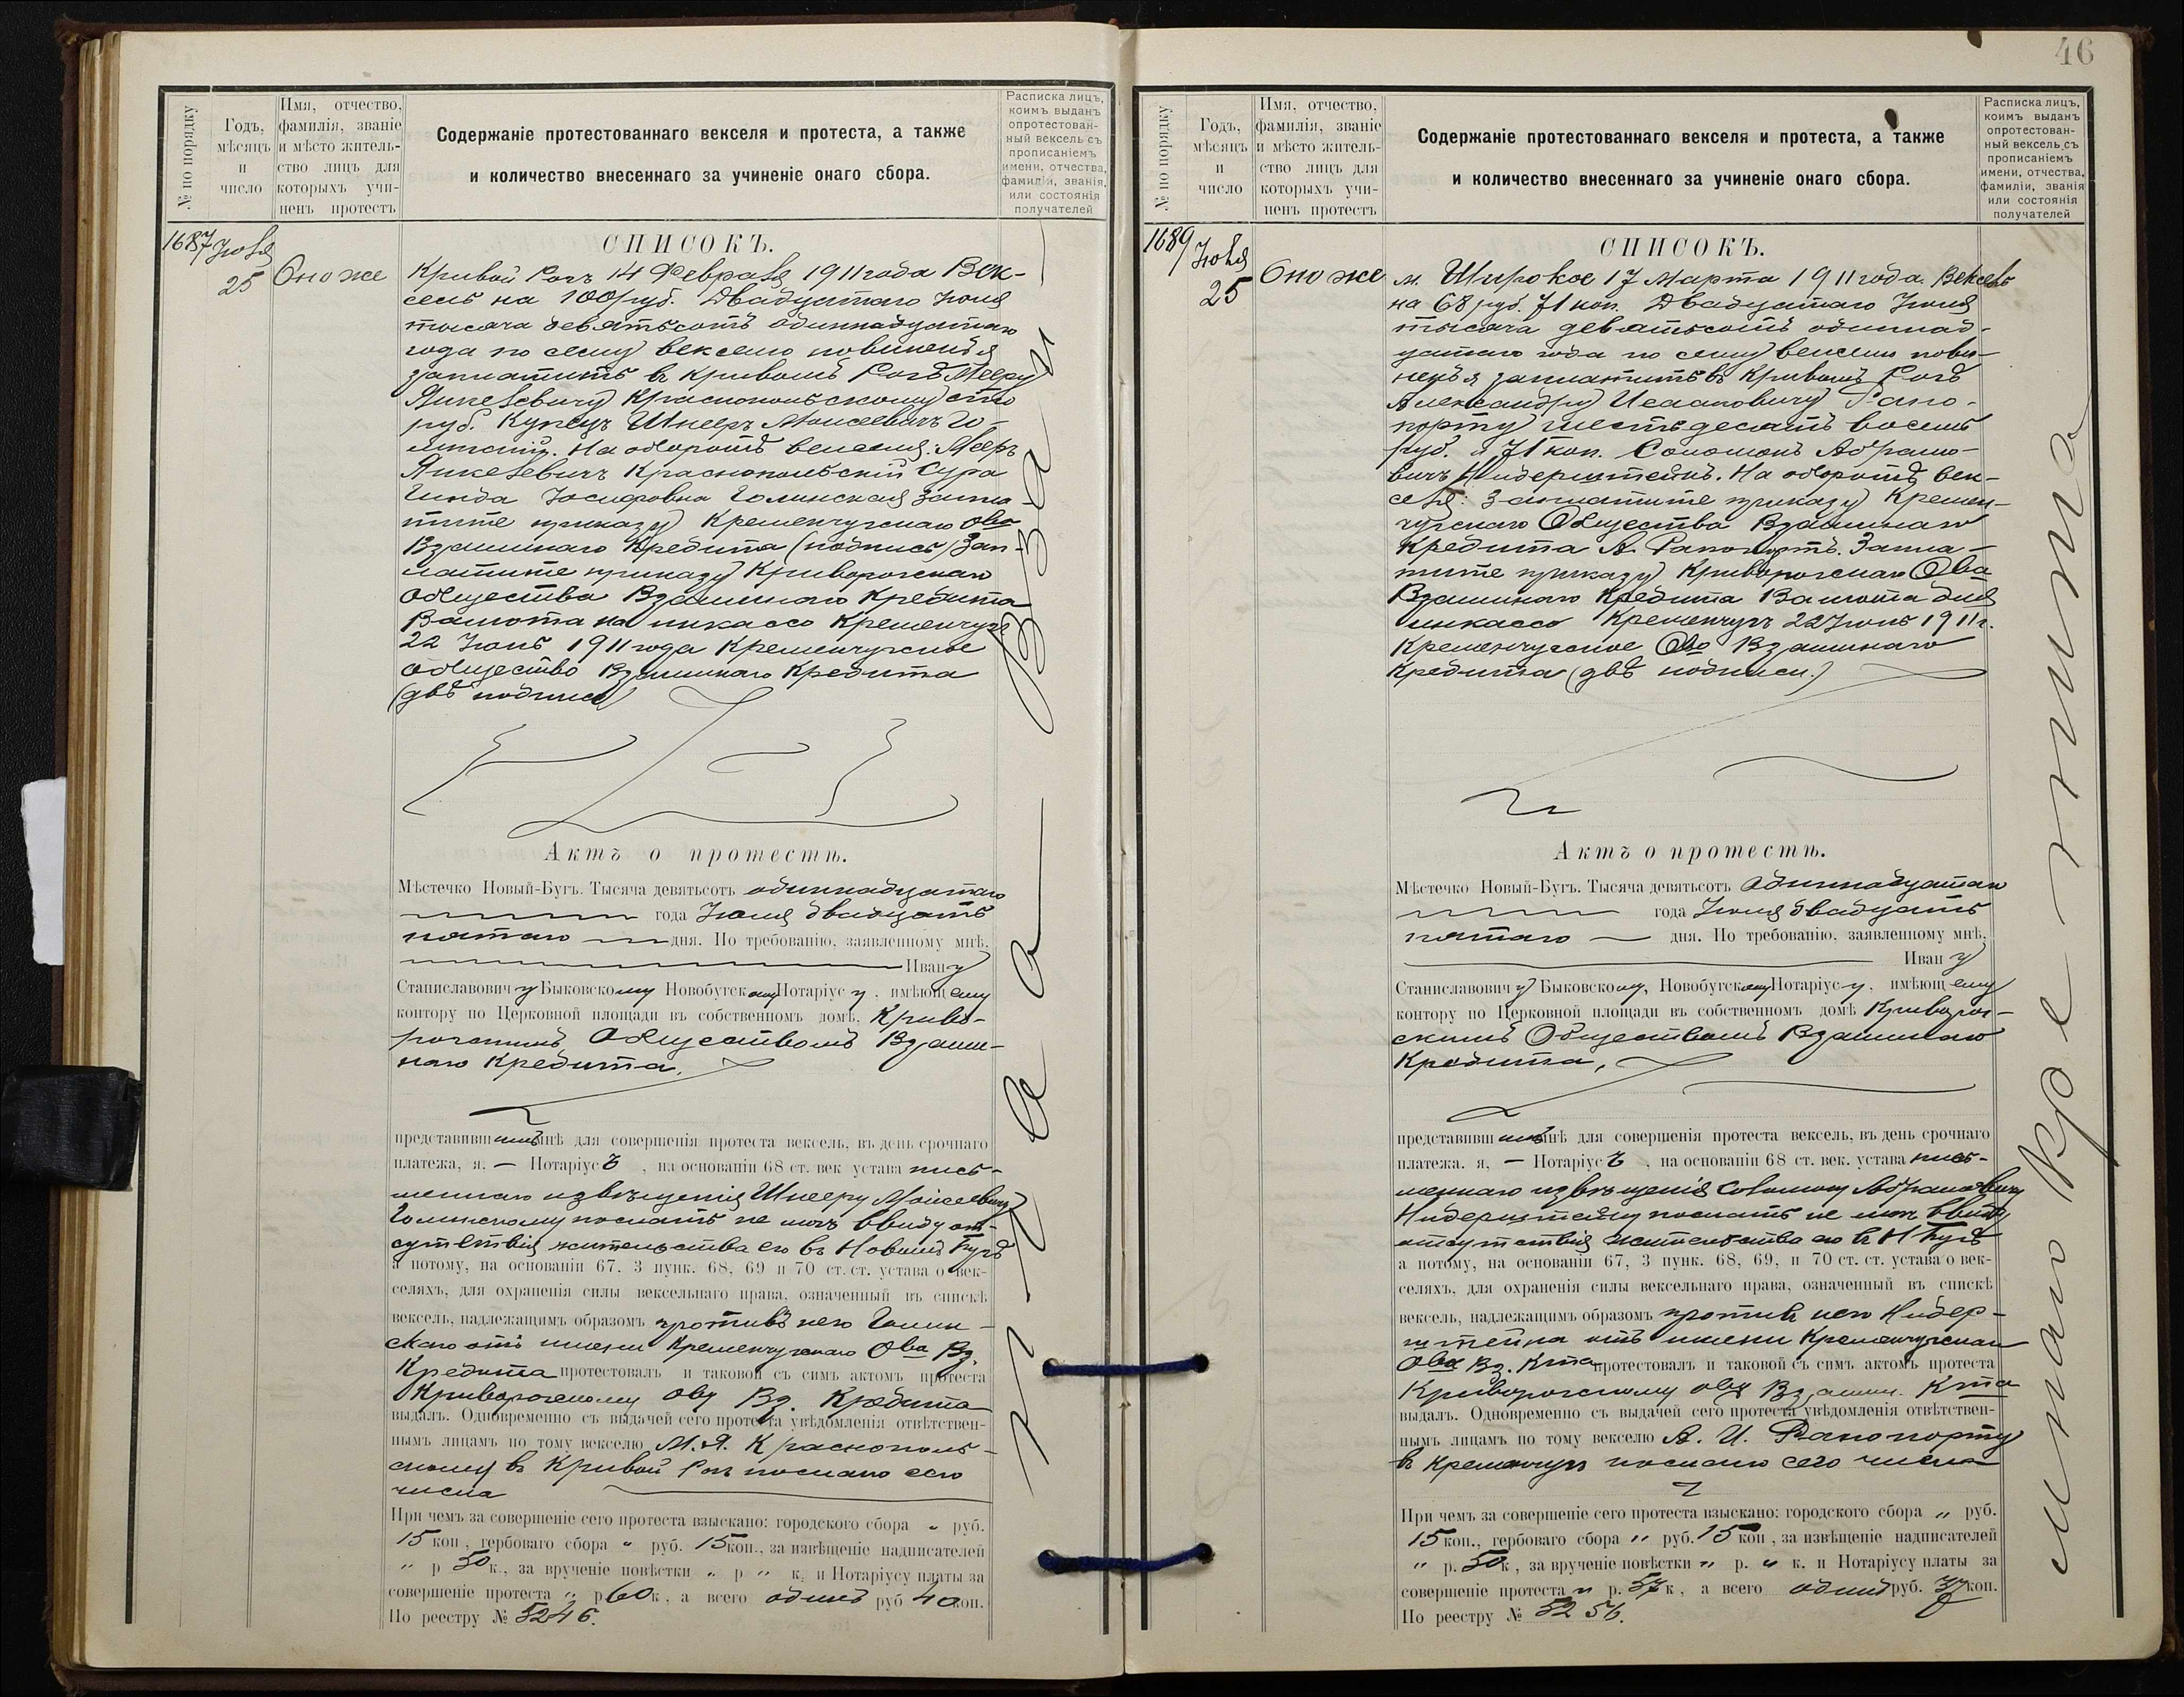 46
№ по порядку
Годъ, мѣсяцъ и число
Имя, отчество, фамилія, званіе и мѣсто жительство лицъ для которыхъ учиненъ протестъ
Содержаніе протестованнаго векселя и протеста, а также
и количество внесеннаго за учиненіе онаго сбора.
Расписка лицъ, коимъ выданъ опротестованный вексель съ прописаніемъ имени, отчества, фамиліи, званія, или состоянія получателей
1687
Іюля
25
Оно же
СПИСОКЪ.
Кривой Рогъ 14 Февраля 1911 года Век-
сель на 100 руб. Двадцатаго Іюня
тысяча девятьсотъ одиннадцатаго
года по сему векселю повиненъ я
заплатить въ Кривомъ Рогѣ Мееру
Янкелевичу Краснопольскому сто
руб. Купецъ Шнееръ Моисеевичъ Го-
линскій. На оборотѣ векселя: Мееръ
Янкелевичъ Краснопольскій Сура
Гинда Іосифовна Голинская Запла-
тите приказу Кременчугскаго Ова
Взаимнаго Кредита (подпись) Зап-
латите приказу Криворогскаго
Общества Взаимнаго Кредита
Валюта на инкассо Кременчугъ
22 Іюнь 1911 года Кременчугское
Общество Взаимнаго Кредита
(двѣ подписи)
Актъ о протестѣ.
Мѣстечко Новый-Бугъ. Тысяча девятьсотъ одиннадцатаго
года Іюня двадцать
пятаго дня. По требованію, заявленному мнѣ,
Ивану
Станиславовичу Быковскому Новобугскому Нотаріусу, имѣющему
контору по Церковной площади въ собственномъ домѣ, Криво-
рогскимъ Обществомъ Взаим-
наго Кредита,
представившимъ мнѣ для совершенія протеста вексель, въ день срочнаго
платежа, я, — Нотаріусъ, на основаніи 68 ст. век устава пись-
меннаго извѣщенія Шнееру Моисеевичу
Голинскому послать не могъ ввиду от-
сутствія жительства его въ Новомъ Бугѣ
а потому, на основаніи 67, 3 пунк. 68, 69 и 70 ст. ст. устава о век-
селяхъ, для охраненія силы вексельнаго права, означенный въ спискѣ
вексель, надлежащимъ образомъ противъ него Голин-
скаго отъ имени Кременчугскаго Ова Вз.
Кредита протестовалъ и таковой съ симъ актомъ протеста
Криворогскому Ову Вз. Кредита
выдалъ. Одновременно съ выдачей сего протеста увѣдомленія отвѣтствен-
нымъ лицамъ по тому векселю М. Я. Краснополь-
скому въ Кривой Рогъ послано сего
числа
При чемъ за совершеніе сего протеста взыскано: городского сбора „ руб.
15 коп, гербоваго сбора „ руб. 15 коп., за извѣщеніе надписателей
„ р 50 к., за врученіе повѣстки „ р „ к. и Нотаріусу платы за
совершеніе протеста „ р 60 к, а всего одинъ руб 40 коп.
По реестру № 5246.
№ по порядку
Годъ, мѣсяцъ и число
Имя, отчество, фамилія, званіе и мѣсто жительство лицъ для которыхъ учиненъ протестъ
Содержаніе протестованнаго векселя и протеста, а также
и количество внесеннаго за учиненіе онаго сбора.
Расписка лицъ, коимъ выданъ опротестованный вексель съ прописаніемъ имени, отчества, фамиліи, званія или состоянія получателей
1689
Іюля
25
Оно же
СПИСОКЪ.
м. Широкое 17 Марта 1911 года. Вексель
на 68 руб. 71 коп. Двадцатаго Іюня
тысяча девятьсотъ одиннад-
цатаго года по сему векселю пови-
ненъ я заплатить въ Кривомъ Рогѣ
Александру Исааковичу Рапо-
порту шестьдесятъ восемь
руб. и 71 коп. Соломонъ Абрамо-
вичъ Нидерштейнъ. На оборотѣ век-
селя: Заплатите приказу Кремен-
чугскаго Общества Взаимнаго
Кредита А. Рапопортъ. Запла-
тите приказу Криворогскаго Ова
Взаимнаго Кредита Валюта для
инкассо Кременчугъ 22 Іюнь 1911 г.
Кременчугское Ово Взаимнаго
Кредита (двѣ подписи.)
Актъ о протестѣ.
Мѣстечко Новый-Бугъ. Тысяча девятьсотъ Одиннадцатаго
года Іюня двадцать
пятаго — дня. По требованію, заявленному мнѣ,
Ивану
Станиславовичу Быковскому, Новобугскому Нотаріусу, имѣющему
контору по Церковной площади въ собственномъ домѣ Криворог-
скимъ Обществомъ Взаимнаго
Кредита,
представившимъ мнѣ для совершенія протеста вексель, въ день срочнаго
платежа. я, — Нотаріусъ, на основаніи 68 ст. век. устава пись-
меннаго извѣщенія Соломону Абрамовичу
Нидерштейну послать не могъ ввиду
отсутствія жительства его въ Н Бугѣ
а потому, на основаніи 67, 3 пунк. 68, 69, и 70 ст. ст. устава о век-
селяхъ, для охраненія силы вексельнаго права, означенный въ спискѣ
вексель, надлежащимъ образомъ противъ него Нидер-
штейна отъ имени Кременчугскаго
Ова Вз. Кта протестовалъ и таковой съ симъ актомъ протеста
Криворогскому Ову Взаимн. Кта
выдалъ. Одновременно съ выдачей сего протеста увѣдомленія отвѣтствен-
нымъ лицамъ по тому векселю А. И. Рапопорту
въ Кременчугъ послано сего числа
При чемъ за совершеніе сего протеста взыскано: городского сбора „ руб.
15 коп., гербоваго сбора „ руб. 15 коп, за извѣщеніе надписателей
„ р. 50 к, за врученіе повѣстки „ р. „ к. и Нотаріусу платы за
совершеніе протеста „ р. 57 к, а всего одинъ руб. 37 коп.
По реестру № 5256.